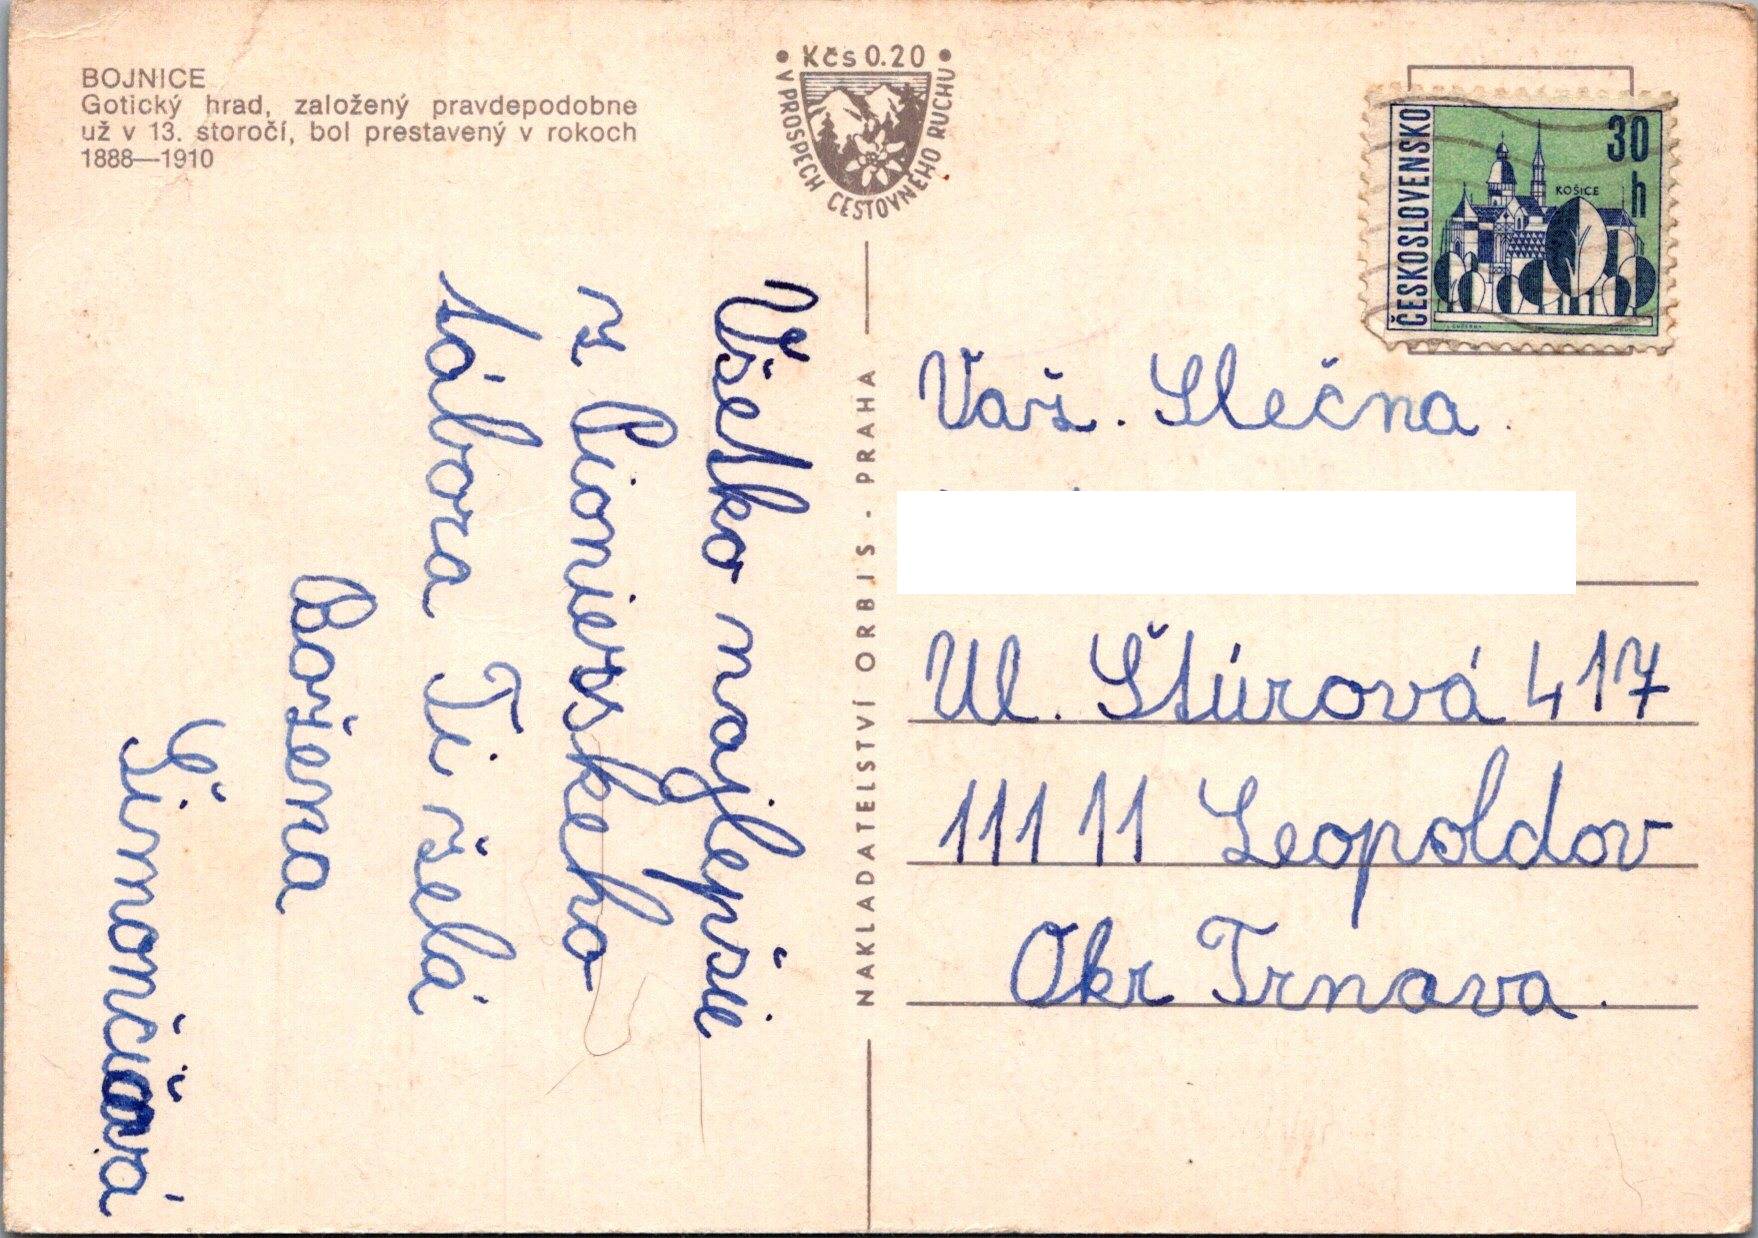 BOJNICE
Gotický hrad, založený pravdepodobne
už v 13. storočí, bol prestavený v rokoch
1888—1910
Kčs 0.20
V PROSPECH CESTOVNÉHO RUCHU
ČESKOSLOVENSKO
30
h
KOŠICE
Všetko najlepšie
z Pionierskeho
tábora Ti želá
Božena
NAKLADATELSTVÍ ORBIS - PRAHA
Váž. Slečna.
Ul. Štúrová 417
111 11 Leopoldov
Okr Trnava.